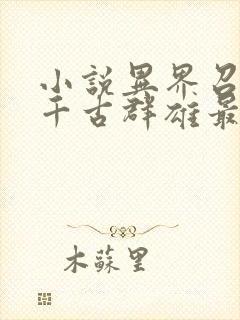 小説異界召
千古群雄最
木蘇里